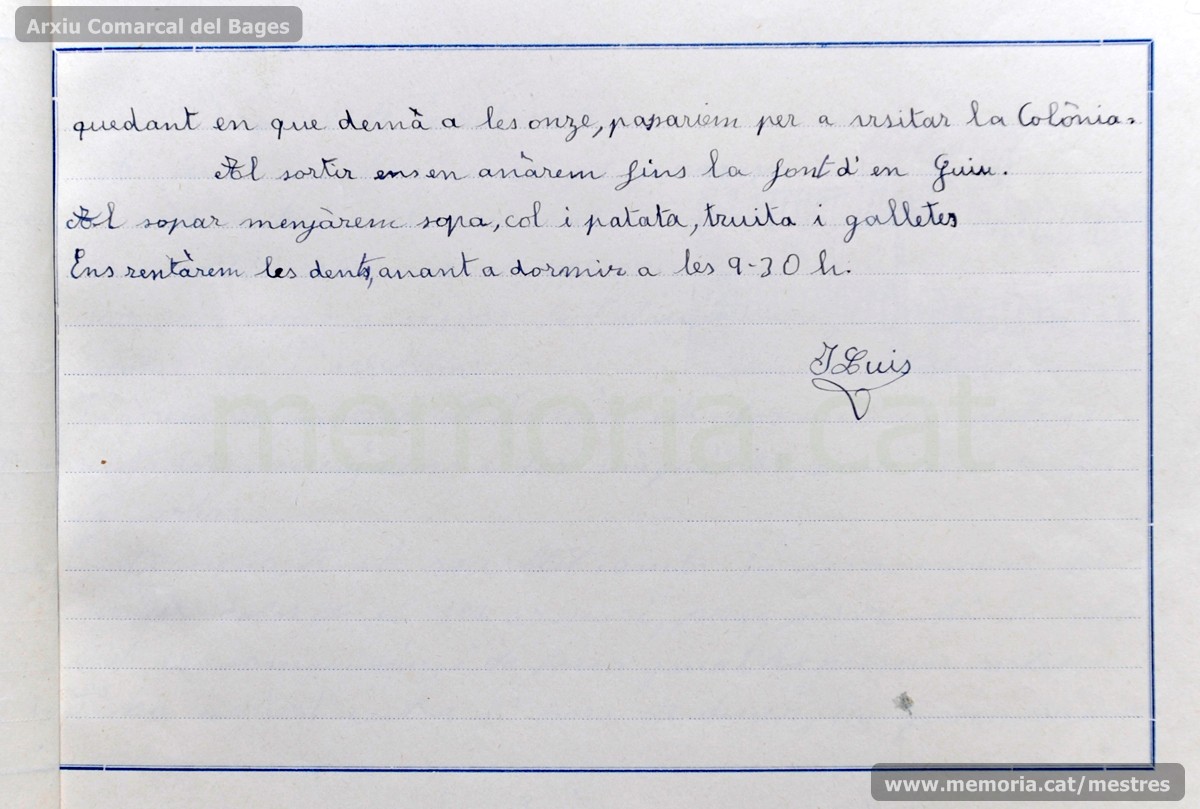 Arxiu Comarcal del Bages
quedant en que demà a les onze, passariem per a visitar la Colònia.
Al sortir ens en anàrem fins la font d' en Guiu.
Al sopar menjàrem sopa, col i patata, truita i galletes
Ens rentàrem les dents, anant a dormir a les 9-30 h.
J Luis
memoria.cat
www.memoria.cat/mestres